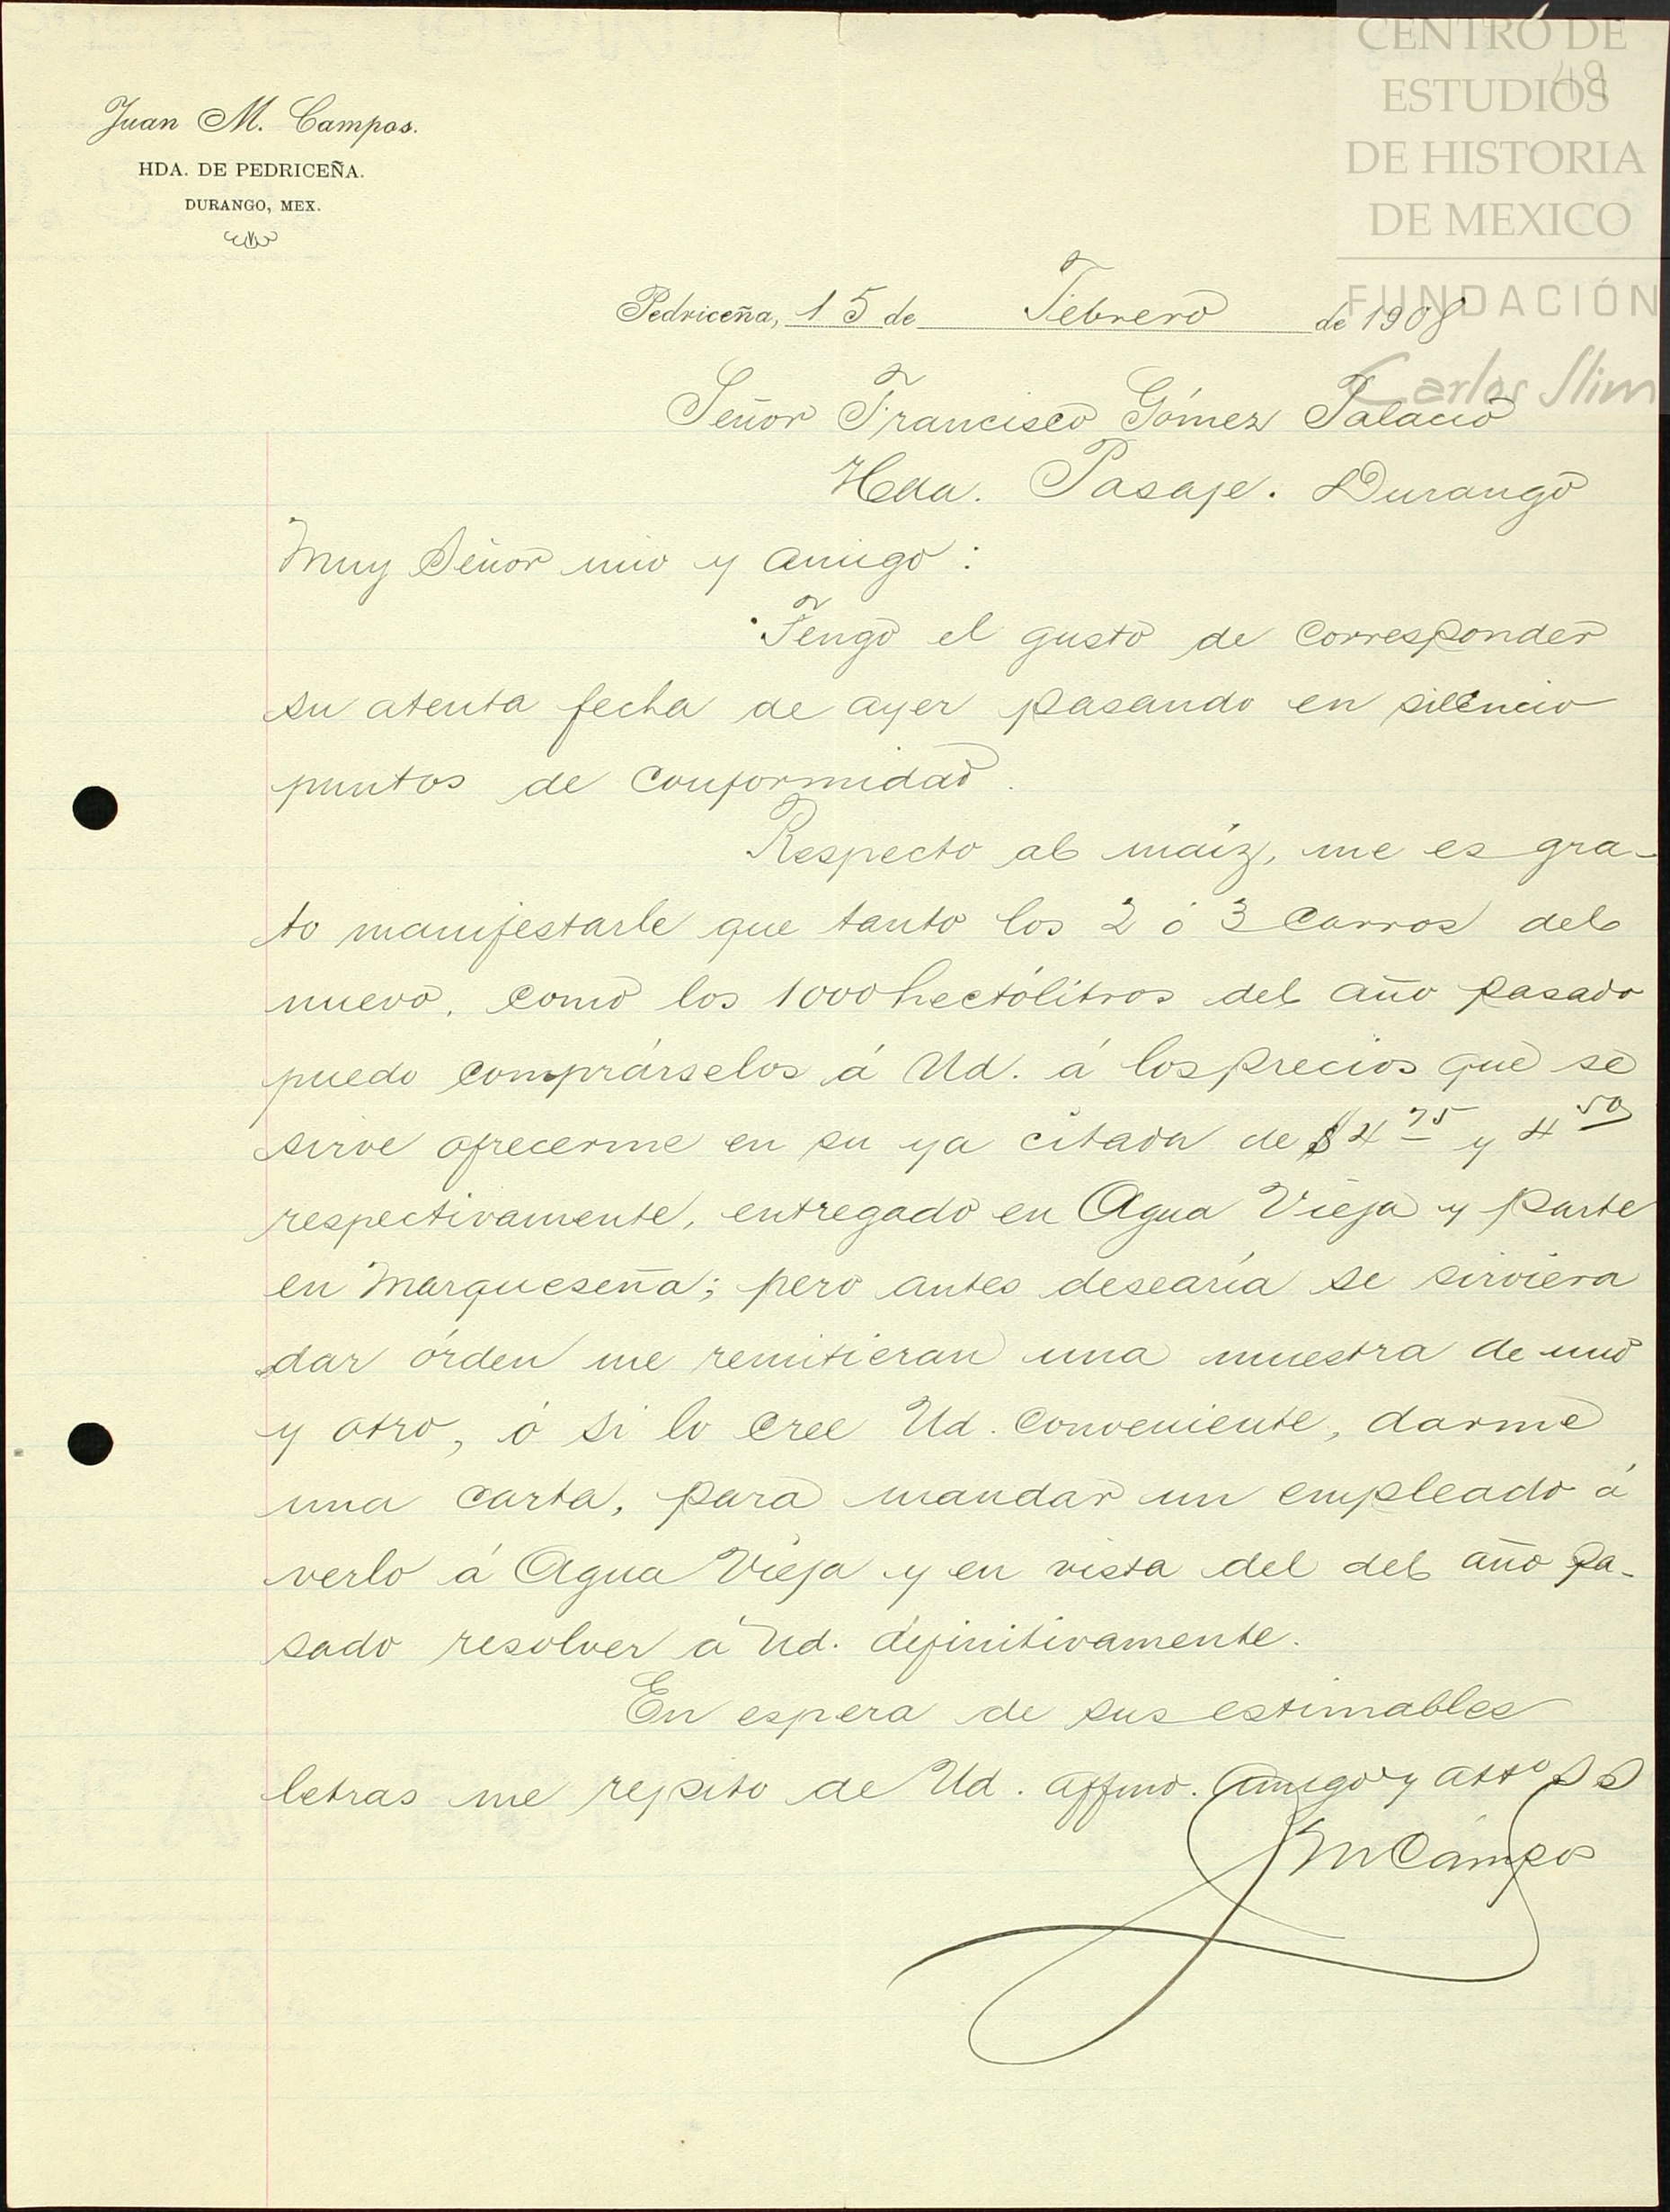 CENTRO DE
ESTUDIOS
DE HISTORIA
DE MEXICO
FUNDACIÓN
Carlos Slim
49
Juan M. Campos.
HDA. DE PEDRICEÑA.
DURANGO, MEX.
Pedriceña, 15 de Febrero de 1908
Señor Francisco Gómez Palacio
Hda. Pasaje. Durango
Muy Señor mio y amigo:
Tengo el gusto de corresponder
su atenta fecha de ayer pasando en silencio
puntos de conformidad.
Respecto al maíz, me es gra-
to manifestarle que tanto los 2 ó 3 carros del
nuevo, como los 1000 hectólitros del año pasado
puedo comprárselos á Ud. á los precios que se
sirve ofrecerme en su ya citada de $4 75 y 4 50
respectivamente, entregado en Agua Vieja y parte
en Marqueseña; pero antes desearía se sirviera
dar órden me remitieran una muestra de uno
y otro, ó si lo cree Ud. conveniente, darme
una carta, para mandar un empleado á
verlo á Agua Vieja y en vista del del año pa-
sado resolver á Ud. definitivamente.
En espera de sus estimables
letras me repito de Ud. affmo. amigo y atto S S
JMCampos